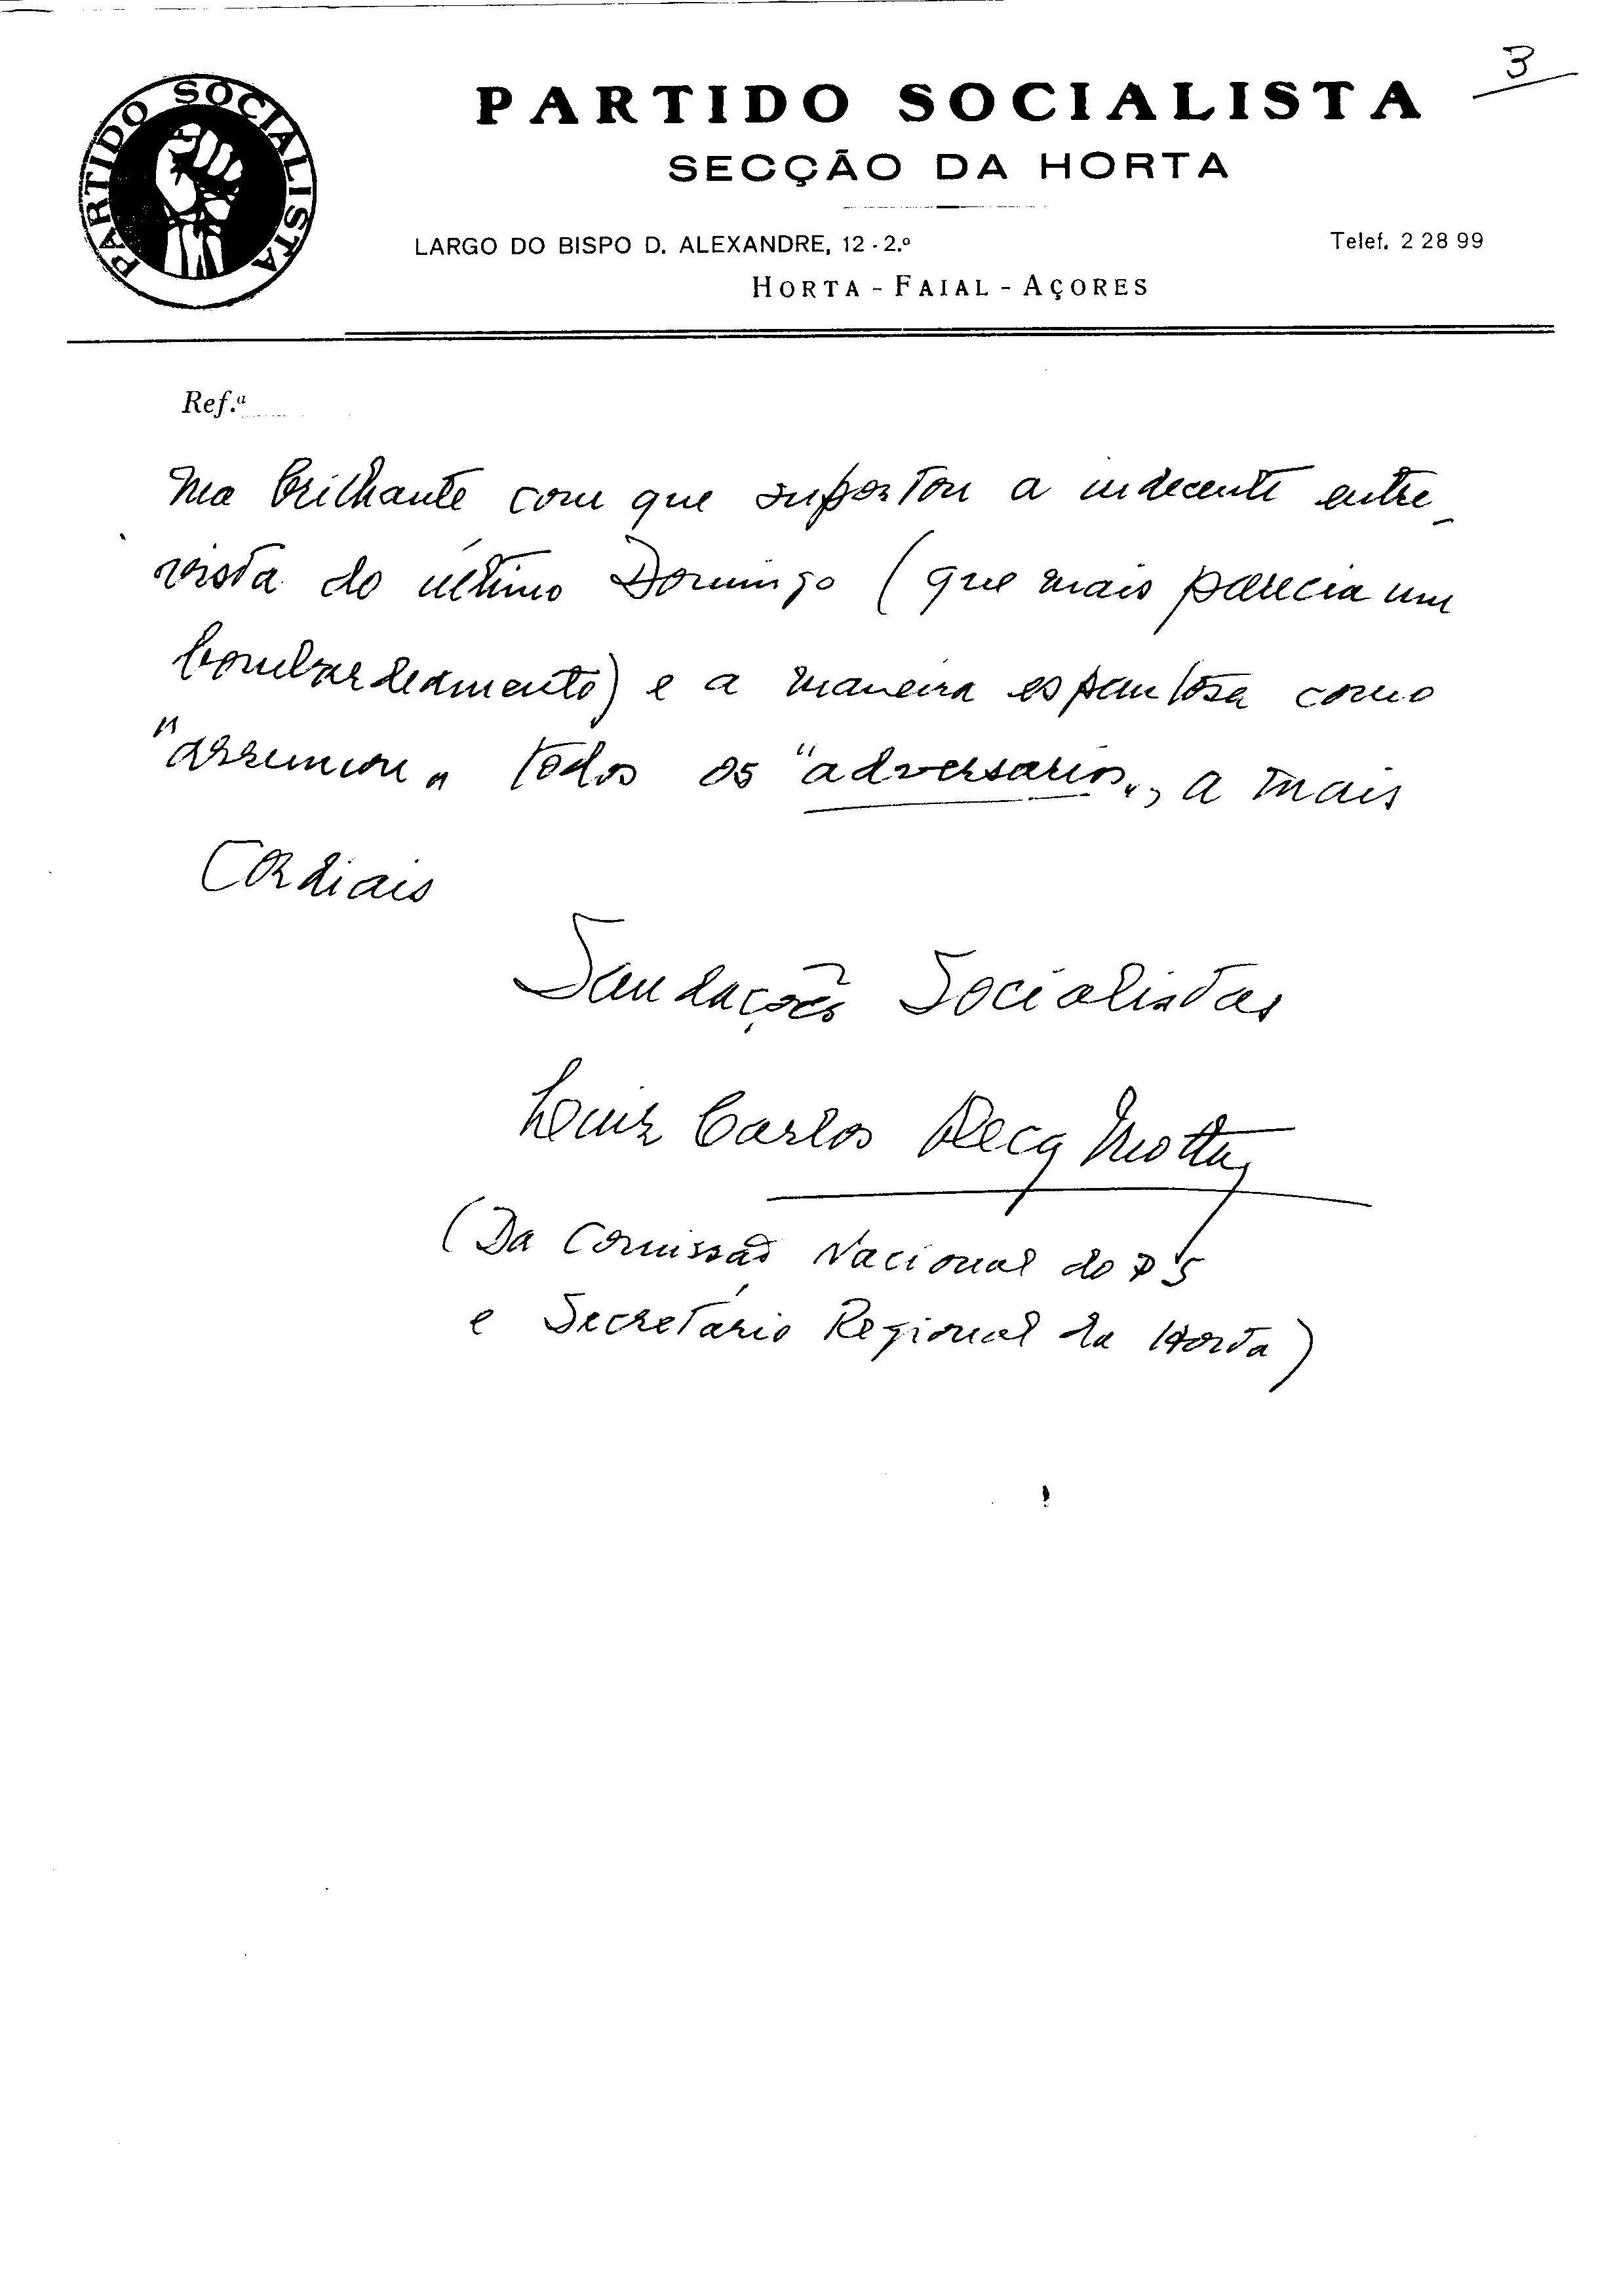 3
PARTIDO SOCIALISTA
PARTIDO SOCIALISTA
SECÇÃO DA HORTA
LARGO DO BISPO D. ALEXANDRE, 12 - 2.º
Telef. 2 28 99
HORTA - FAIAL - AÇORES
Ref.ª
ma brilhante com que suportou a indecente entre_
vista do último Domingo (que mais parecia um
bombardeamento) e a maneira espantosa como
"arrumou" todos os "adversarios", a mais
Cordiais
Saudações Socialistas
Luiz Carlos Decq Motta
(Da Comissão Nacional do PS
e Secretário Regional da Horta)